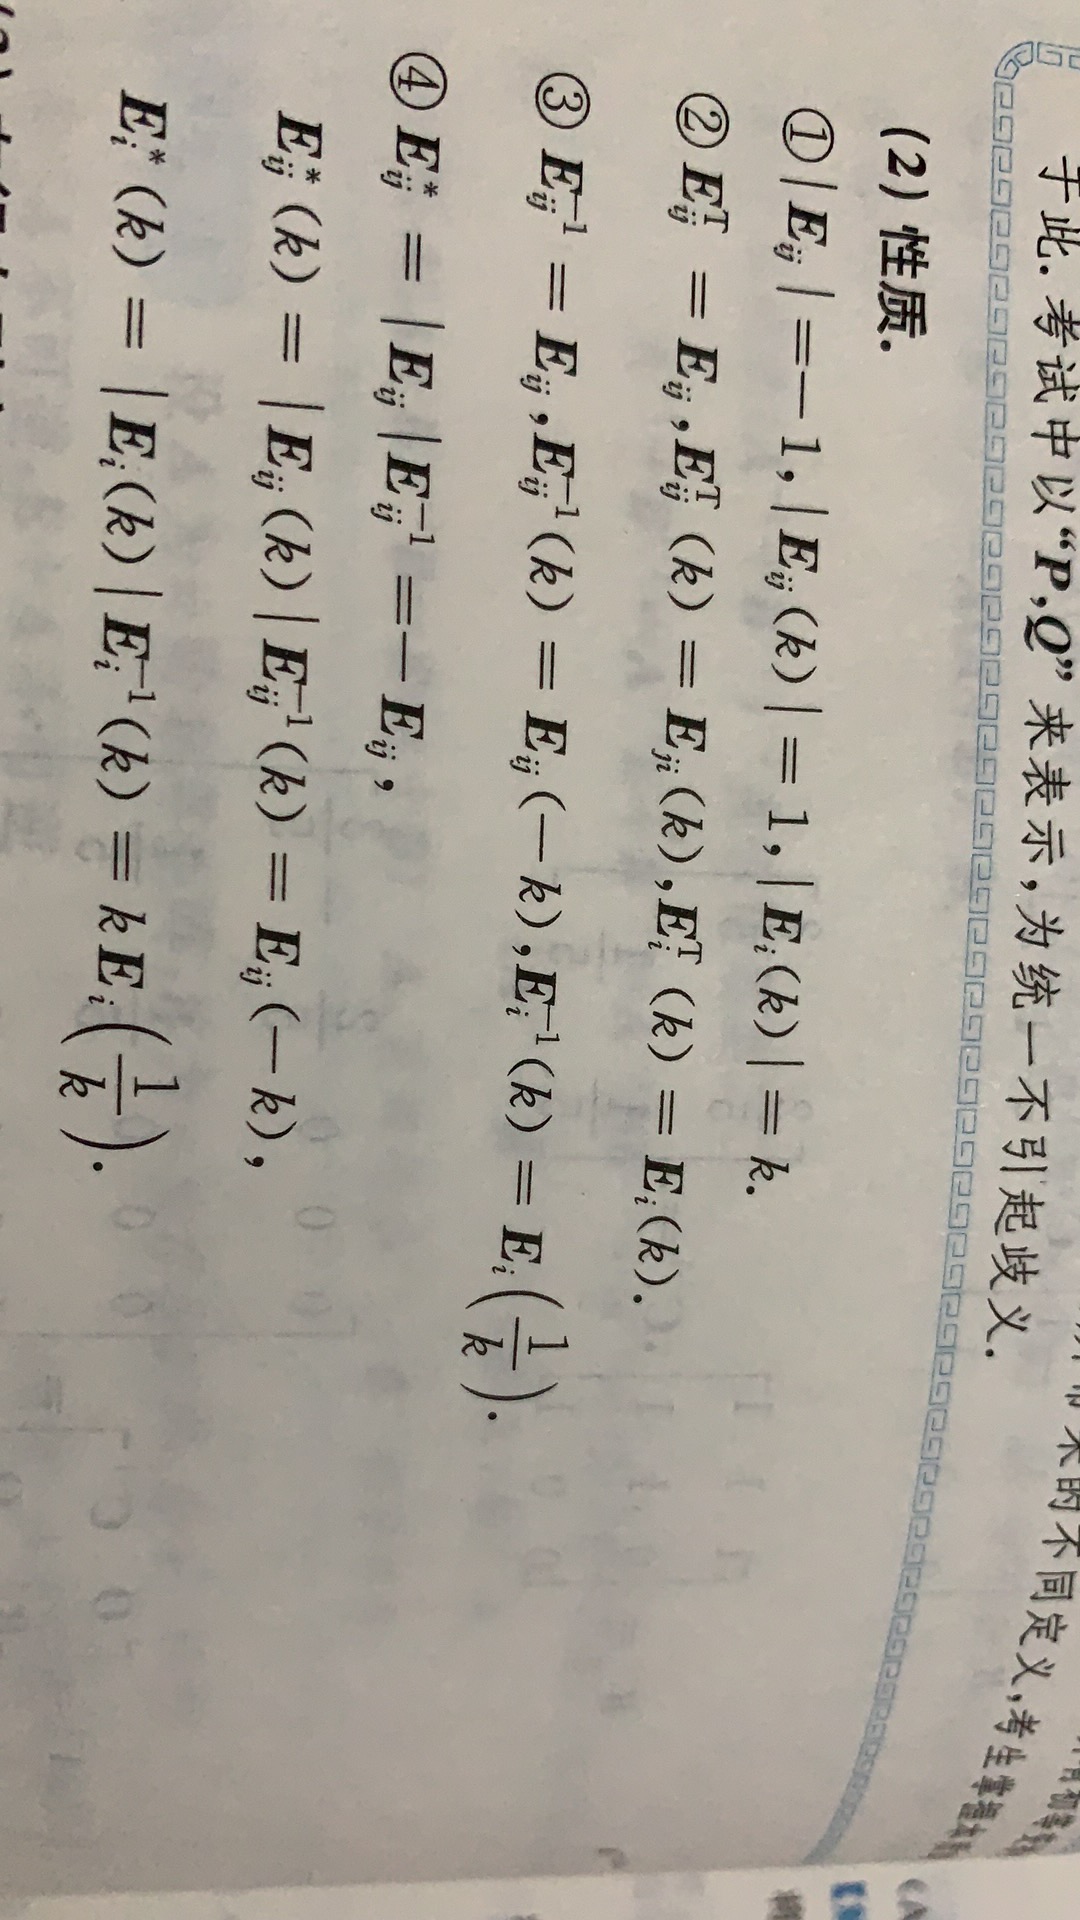 来的不同定义,考生掌握
于此.考试中以“P,Q”来表示,为统一不引起歧义.
(2)性质.
①|E_{ij}|=-1,|E_{ij}(k)|=1,|E_i(k)|=k.
②E_{ij}^T=E_{ij},E_{ij}^T(k)=E_{ji}(k),E_i^T(k)=E_i(k).
③E_{ij}^{-1}=E_{ij},E_{ij}^{-1}(k)=E_{ij}(-k),E_i^{-1}(k)=E_i(\frac{1}{k}).
④E_{ij}^*=|E_{ij}|E_{ij}^{-1}=-E_{ij},
E_{ij}^*(k)=|E_{ij}(k)|E_{ij}^{-1}(k)=E_{ij}(-k),
E_i^*(k)=|E_i(k)|E_i^{-1}(k)=kE_i(\frac{1}{k}).
(A